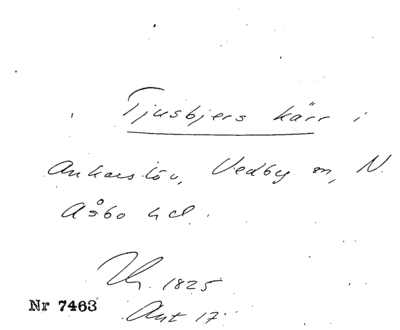 Tjusbjers kärr i
Ankarslöv, Vedby sn, N.
Åsbo hd.
1825
Nr 7463
Akt 17.